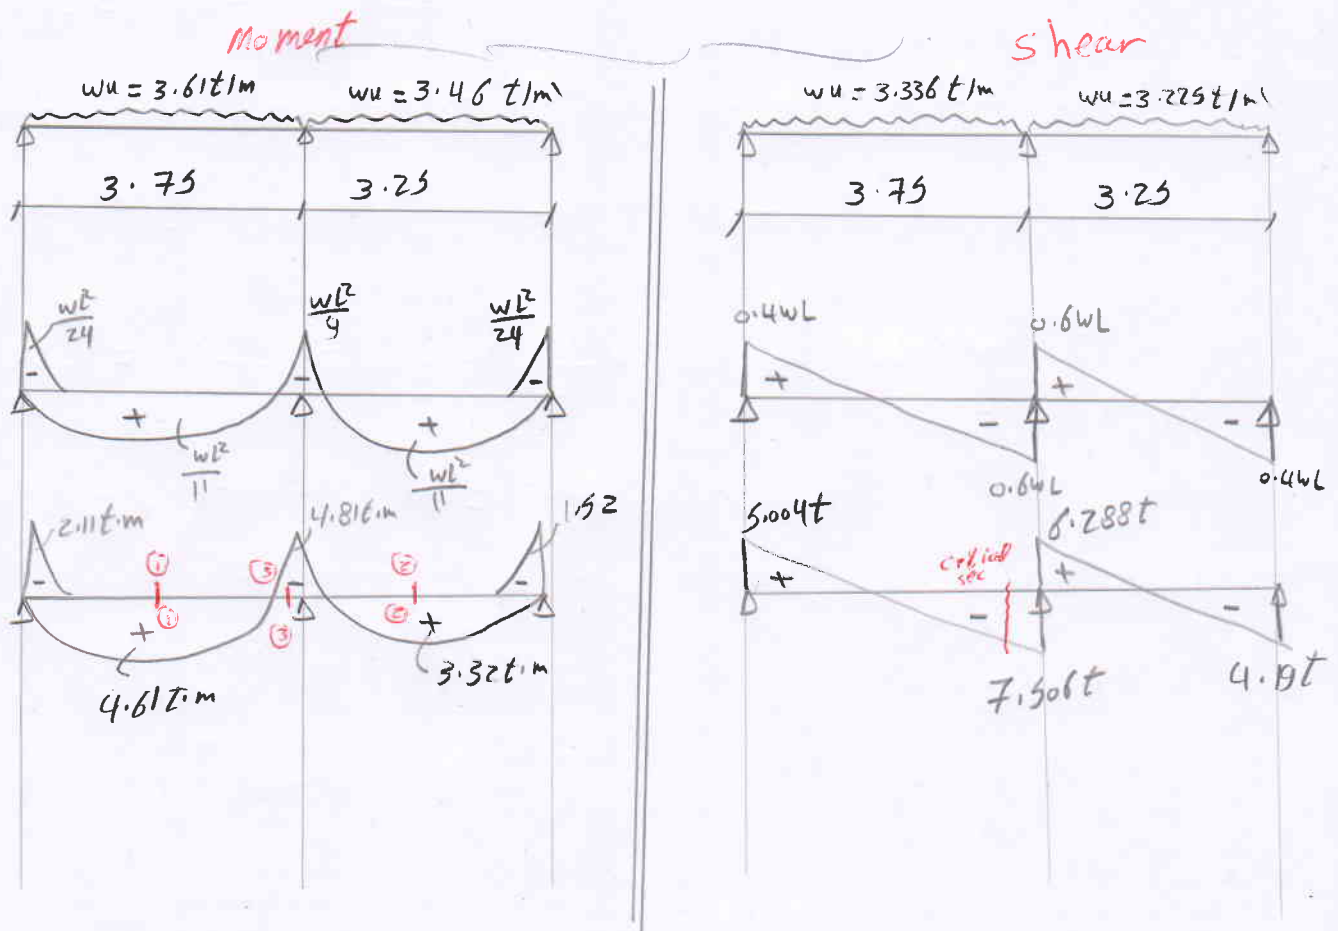 Moment
wu = 3.61t/m
wu = 3.46 t/m'
3.75
3.25
wl²/24
wl²/9
wl²/24
-
-
-
+
+
wl²/11
wl²/11
2.11t.m
4.81t.m
1.52
①
③
②
-
-
-
①
③
②
+
+
4.61t.m
3.32t.m
shear
wu = 3.336 t/m
wu = 3.225 t/m'
3.75
3.25
0.4wL
0.6wL
+
+
-
-
0.6wL
0.4wL
5.004t
6.288t
sec
+
+
-
-
7.506t
4.19t